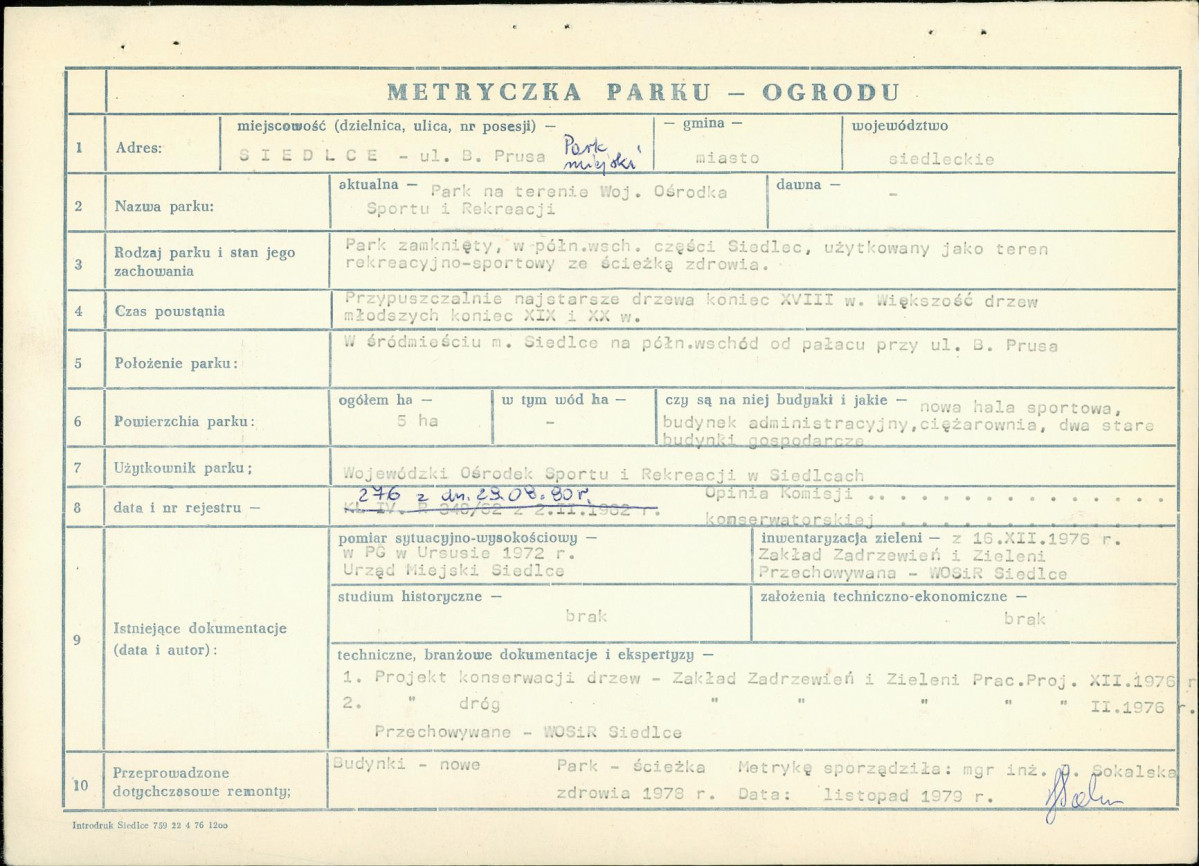 METRYCZKA PARKU — OGRODU
1
Adres:
miejscowość (dzielnica, ulica, nr posesji) —
SIEDLCE - ul. B. Prusa
Park
miejski
— gmina —
miasto
województwo
siedleckie
2
Nazwa parku:
aktualna — Park na terenie Woj. Ośrodka
Sportu i Rekreacji
dawna — -
3
Rodzaj parku i stan jego
zachowania
Park zamknięty, w półn.wsch. części Siedlec, użytkowany jako teren
rekreacyjno-sportowy ze ścieżką zdrowia.
4
Czas powstąnia
Przypuszczalnie najstarsze drzewa koniec XVIII w. Większość drzew
młodszych koniec XIX i XX w.
5
Położenie parku:
W śródmieściu m. Siedlce na półn.wschód od pałacu przy ul. B. Prusa
6
Powierzchia parku:
ogółem ha —
5 ha
w tym wód ha —
-
czy są na niej budynki i jakie — nowa hala sportowa,
budynek administracyjny,ciężarownia, dwa stare
budynki gospodarcze
7
Użytkownik parku;
Wojewódzki Ośrodek Sportu i Rekreacji w Siedlcach
8
data i nr rejestru —
276 z dn. 29.08.80r.
KL IV. R 348/62 z 2.II.1962 r.
Opinia Komisji .. . . . . . . . . . . . . .
konserwatorskiej . . . . . . . . . . . .
9
Istniejące dokumentacje
(data i autor):
pomiar sytuacyjno-wysokościowy —
w PG w Ursusie 1972 r.
Urząd Miejski Siedlce
inwentaryzacja zieleni — z 16.XII.1976 r.
Zakład Zadrzewień i Zieleni
Przechowywana - WOSiR Siedlce
studium historyczne —
brak
założenia techniczno-ekonomiczne —
brak
techniczne, branżowe dokumentacje i ekspertyzy —
1. Projekt konserwacji drzew - Zakład Zadrzewień i Zieleni Prac.Proj. XII.1976 r
2. " dróg " " " " " II.1976 r.
Przechowywane - WOSiR Siedlce
10
Przeprowadzone
dotychczasowe remonty;
Budynki - nowe
Park - ścieżka
zdrowia 1978 r.
Metrykę sporządziła: mgr inż. Sokalska
Data: listopad 1979 r.
Introdruk Siedlce 759 22 4 76 12oo